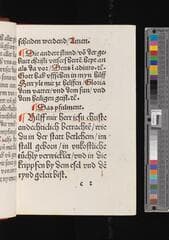 scheiden werdend, Amen.
Die ander stund vō der ge
burt christi vnsers herē bept an
als da vor. Deus ī adiuto. rē.
Gott hab vffsehen in myn hilff
Herr yle mir ze helffen. Gloria
dem vatter. vnd dem sun / vnd
dem heiligen geist. rē.
Das psalment.
Hilff mir herr ich christe
andechticlich betrachtē / wie
du in der statt betlehem / im
stall geborn / in vnköstliche
tüchly verwicklet / vnd in die
krippfen by dem esel vnd dē
rynd geleit bist.
c 2